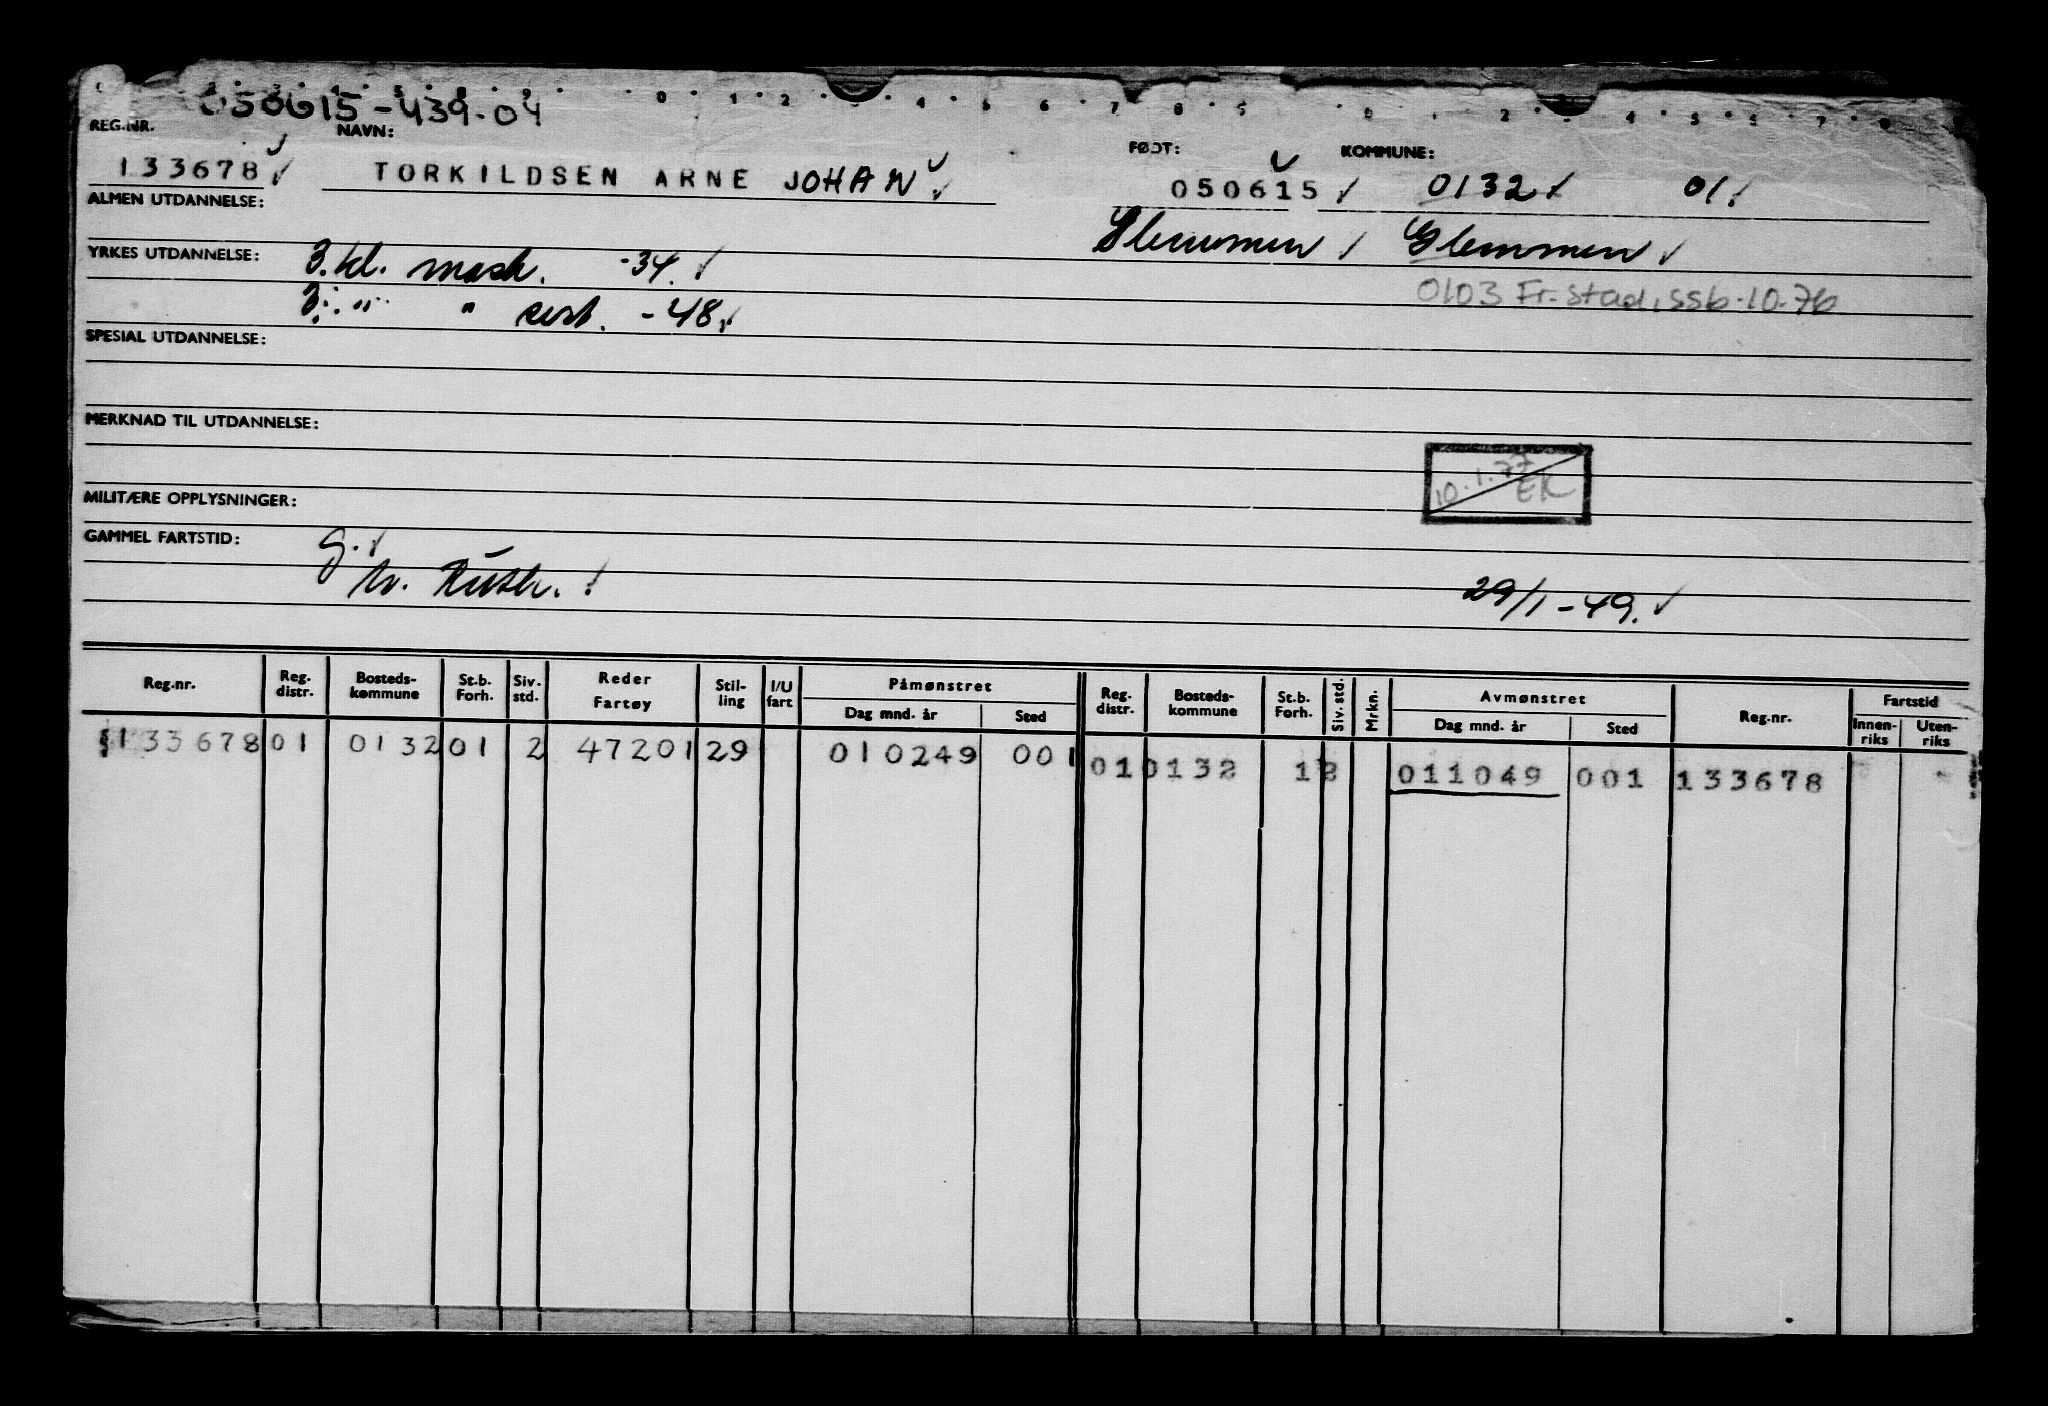 050615-439.04
REG.NR. NAVN: FØDT: KOMMUNE:
133678 TORKILDSEN ARNE JOHAN 050615 0132 01
ALMEN UTDANNELSE: Glemmen Glemmen
YRKES UTDANNELSE: 3.kl. mask. -34.
0103 Fr.stad, ssb-10-76
3. " " sert. -48.
SPESIAL UTDANNELSE:
MERKNAD TIL UTDANNELSE:
10.1.77 EK
MILITÆRE OPPLYSNINGER:
GAMMEL FARTSTID: G.
29/1-49.
Reg.nr. Reg. distr. Bosteds-kommune St.b. Forh. Siv. std. Reder Fartøy Stil-ling I/U fart Påmønstret Dag mnd. år Sted Reg. distr. Bosteds-kommune St.b. Forh. Siv. std. Mrkn. Avmønstret Dag mnd. år Sted Reg.nr. Fartstid Innen-riks Uten-riks
133678 01 0132 01 2 47201 29 010249 001 01 0132 1 2 011049 001 133678